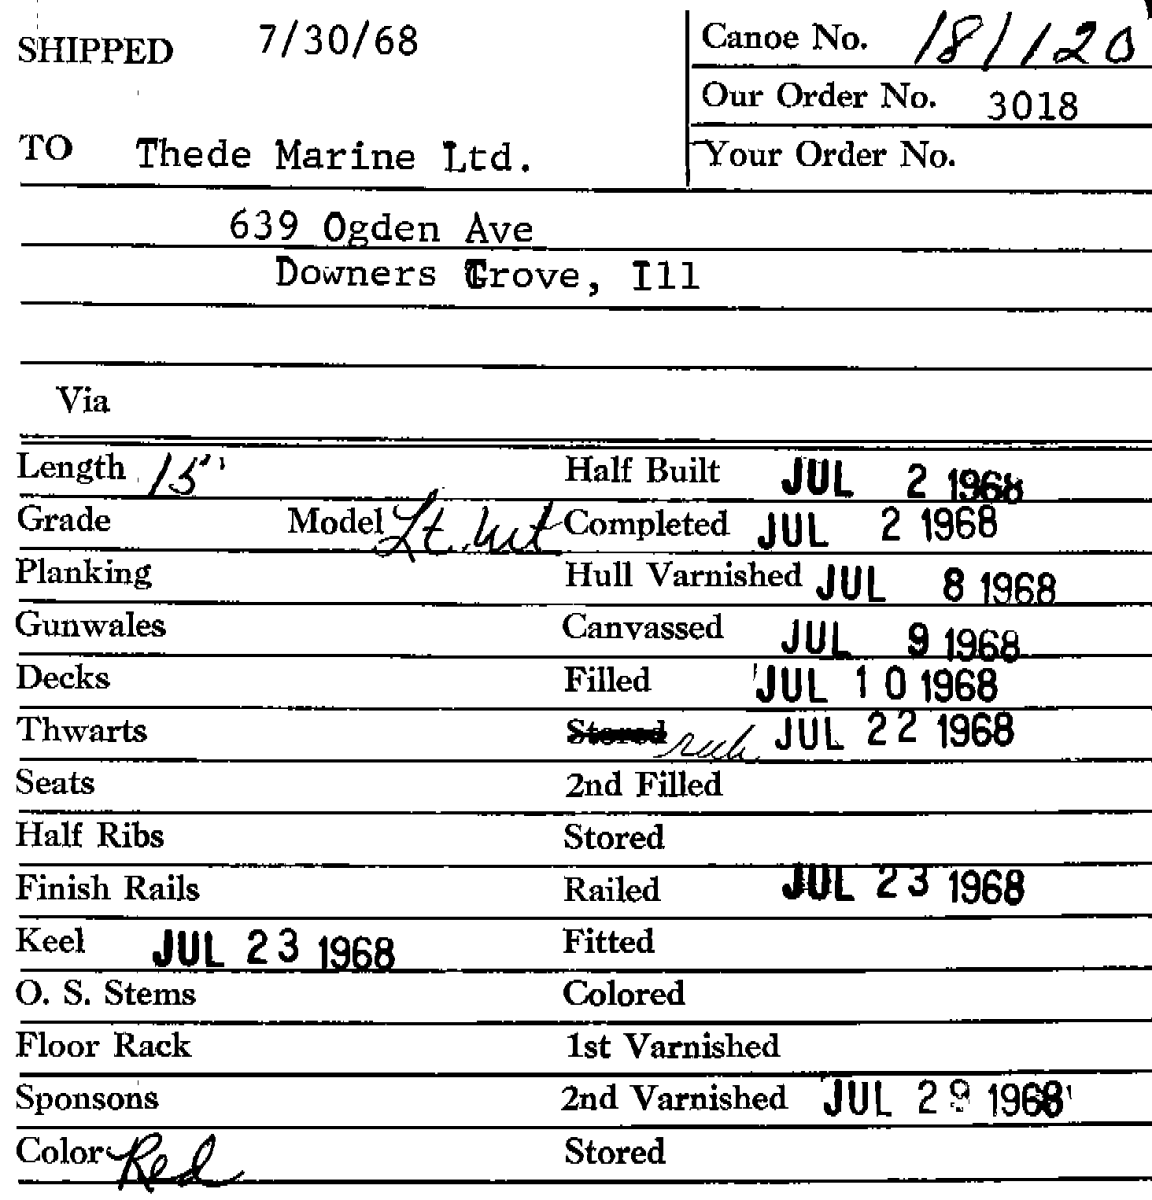 SHIPPED 7/30/68 Canoe No. 181120
Our Order No. 3018
TO Thede Marine Ltd. Your Order No.
639 Ogden Ave
Downers Grove, Ill
Via
Length 15' Half Built JUL 2 1968
Grade Model Lt. Wt Completed JUL 2 1968
Planking Hull Varnished JUL 8 1968
Gunwales Canvassed JUL 9 1968
Decks Filled JUL 10 1968
Thwarts Stored JUL 22 1968
Seats 2nd Filled
Half Ribs Stored
Finish Rails Railed JUL 23 1968
Keel JUL 23 1968 Fitted
O. S. Stems Colored
Floor Rack 1st Varnished
Sponsons 2nd Varnished JUL 29 1968
Color Red Stored